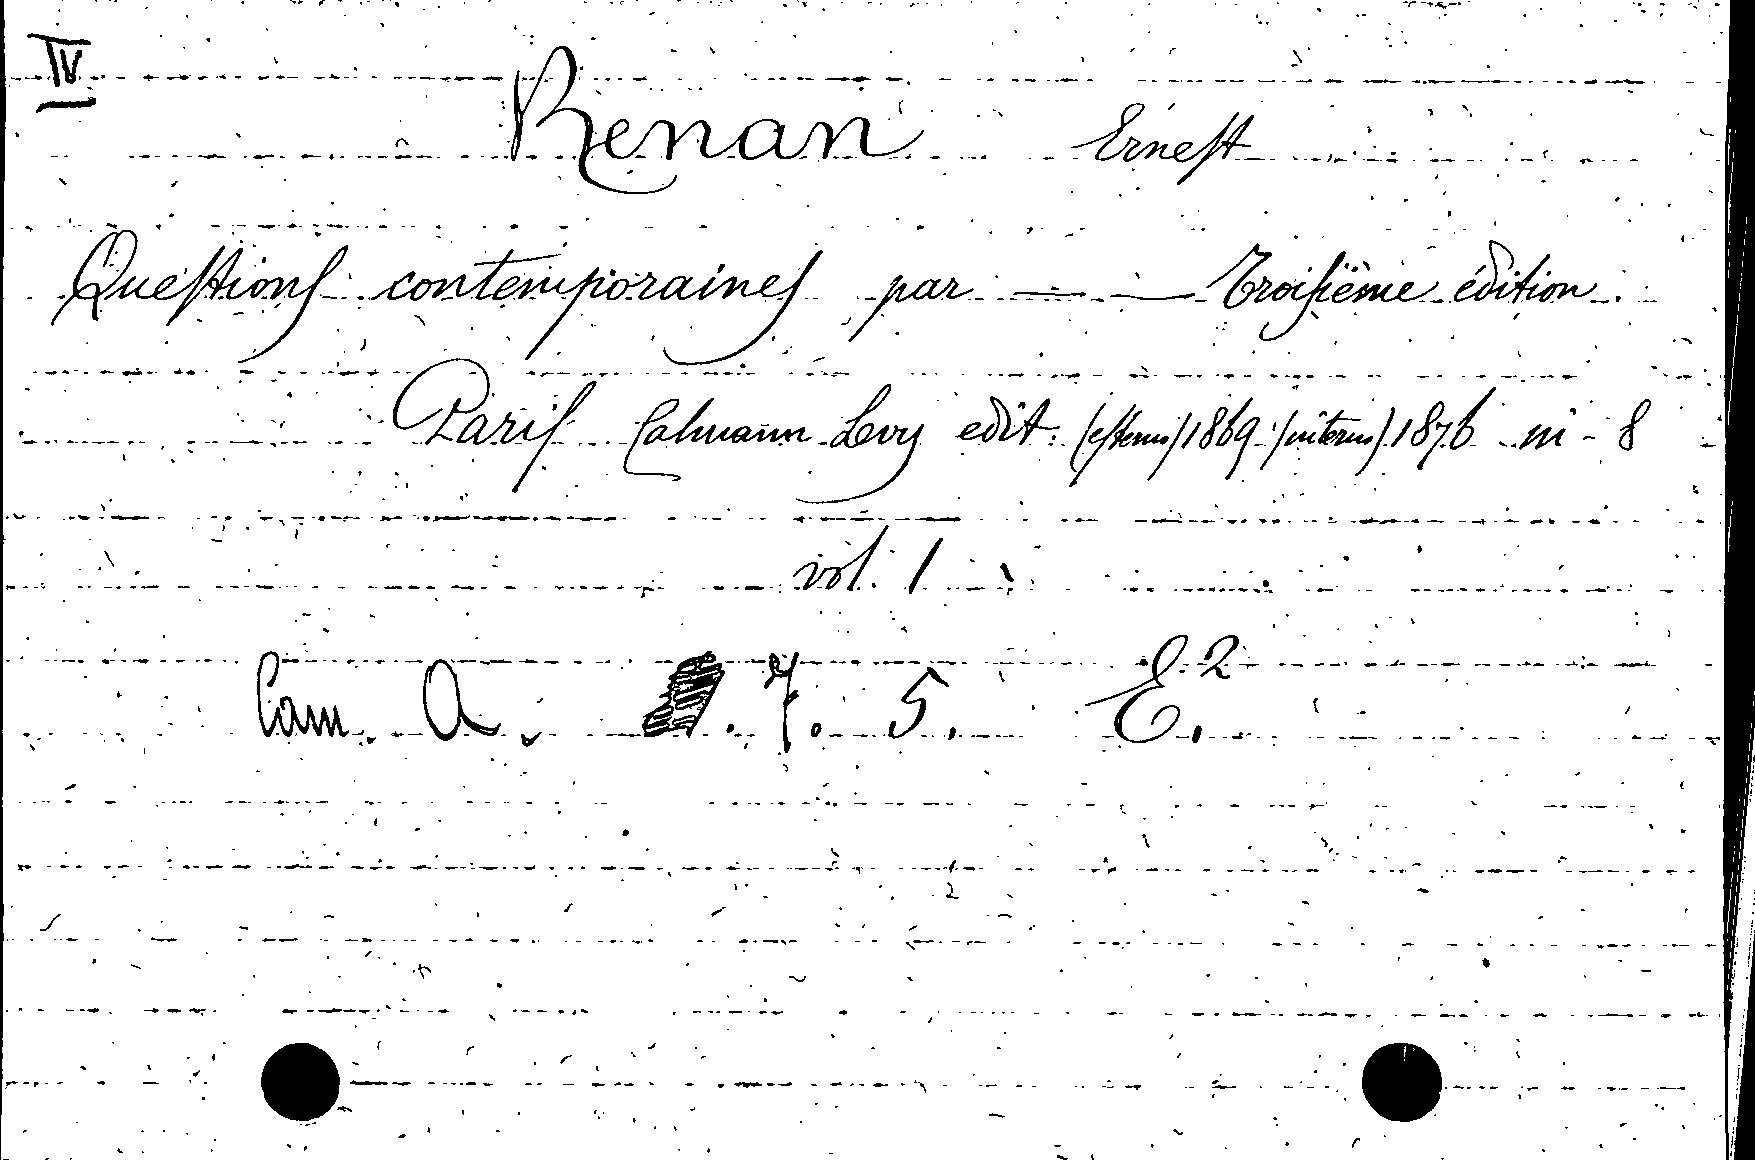 IV
Renan Ernest
Questions contemporaines par — — Troisième édition.
Paris Calmann Levy edit: (esterno) 1869 (interno) 1876 in - 8
vol. 1
Cam. A. 7. 5. E.2